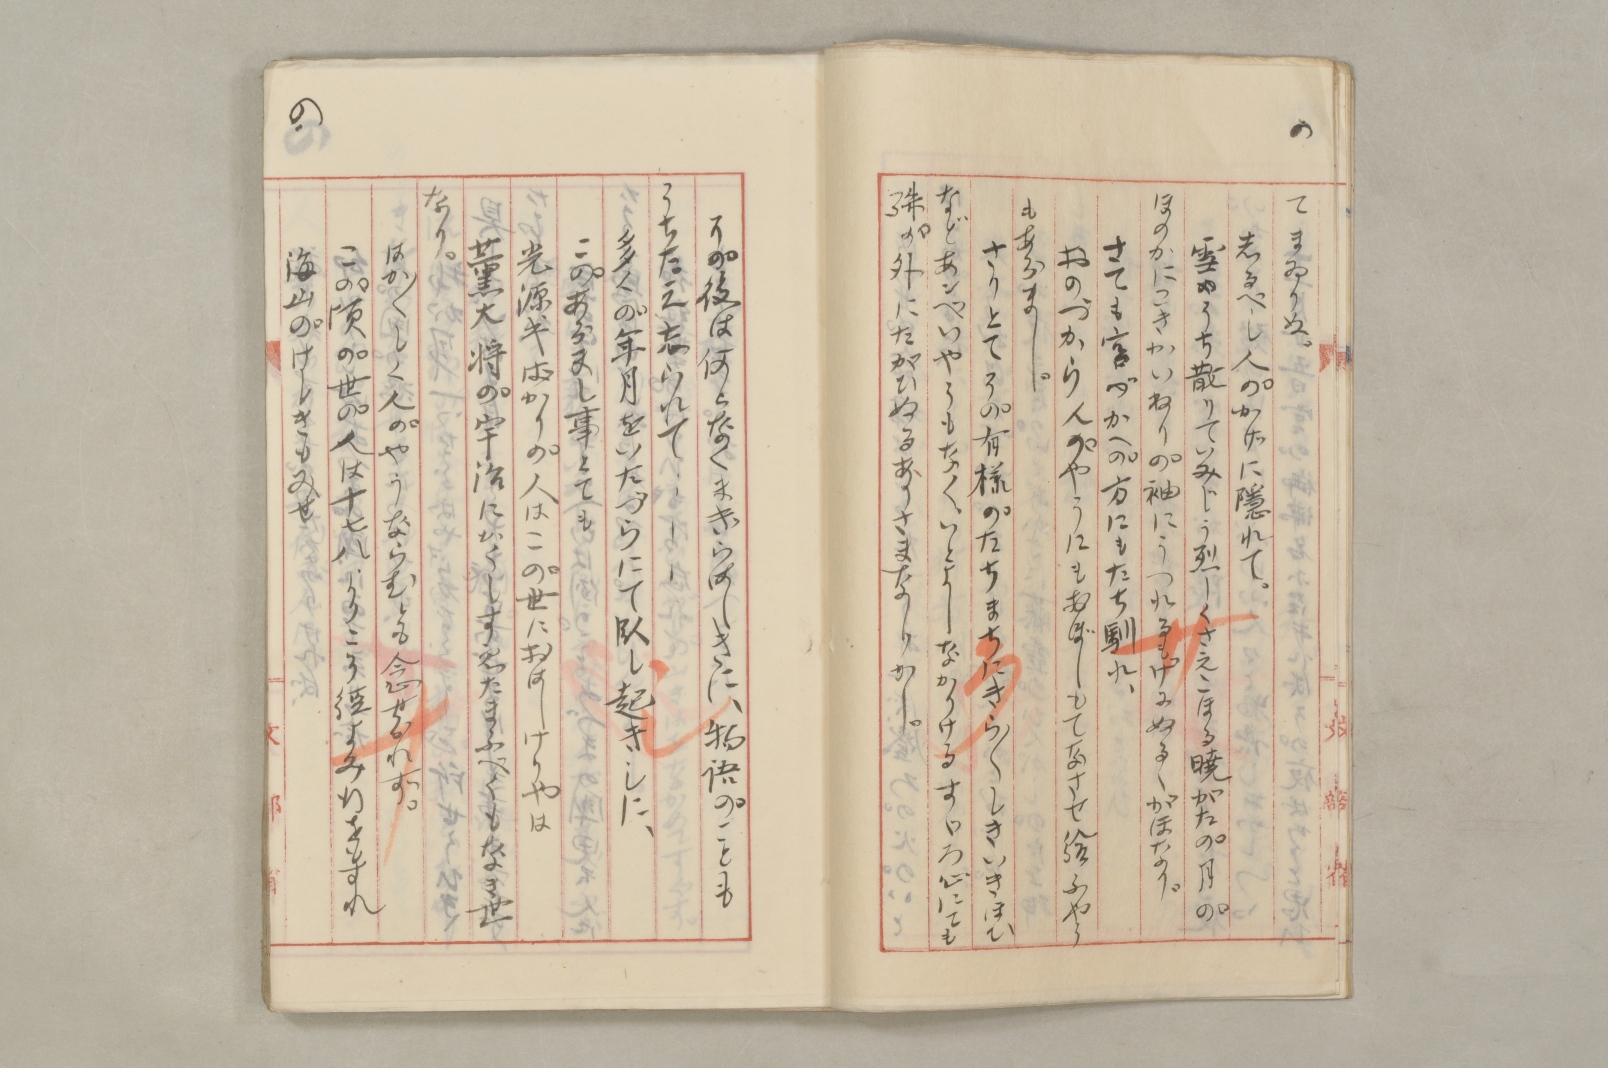 の
てまゐりぬ。
志るべし人のかげに隠れて。
雪のうち散りていみじう烈しくさえこほる暁がたの月の
ほのかにこきかいねりの袖にうつれるもげにぬるゝがほなり。
さても宮づかへの方にもたち馴れ、
おのづから人のやうにもおぼしもてなさせ給ふやう
もあらまし。
さりとてその有様のたちまちにきら〳〵しきいきほひ
などあンべいやうもなく、いとよしなかりけるすゞろ心にても
殊の外にたがひぬるありさまなりかし。
の
その後は何となくまぎらはしきに、物語のことも
うちたえ忘られて、
多くの年月をいたづらにて臥し起きしに、
このあらまし事とても
光源氏ばかりの人はこの世におはしけりやは
薫大将の宇治にかくしすゑたまふべくもなき世
なり。
はか〴〵しく人のやうならむとも念ぜられず。
この頃の世の人は十七八よりこそ経よみ行をもすれ
海山のけしきもみせ
文部省